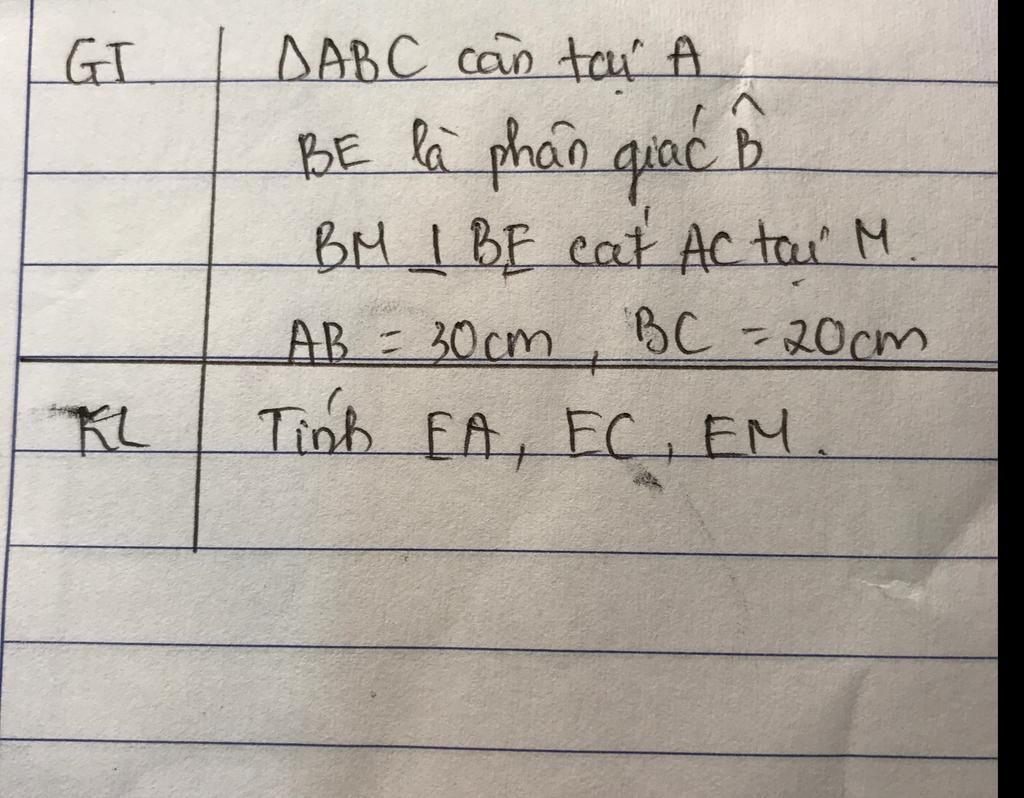 GT ΔABC cân tại A
BE là phân giác B̂
BM ⊥ BE cắt AC tại M.
AB = 30cm, BC = 20cm
KL Tính EA, EC, EM.